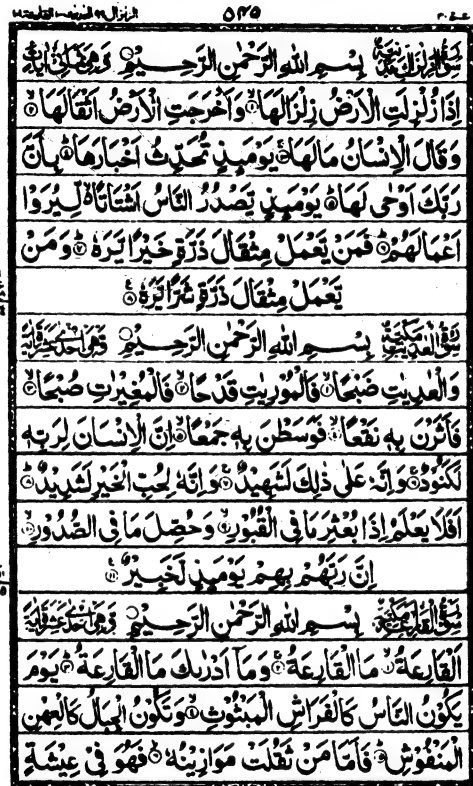 عم ٣٠ ٥٤٥ الزلزال ٩٩ العديت ١٠٠ القارعة ١٠١
سورة الزلزال مدنية بِسْمِ اللهِ الرَّحْمٰنِ الرَّحِيْمِ وهى ثمان آيات
اِذَا زُلْزِلَتِ الْاَرْضُ زِلْزَالَهَا ۙ﴿۱﴾ وَاَخْرَجَتِ الْاَرْضُ اَثْقَالَهَا ۙ﴿۲﴾
وَقَالَ الْاِنْسَانُ مَا لَهَا ۚ﴿۳﴾ يَوْمَئِذٍ تُحَدِّثُ اَخْبَارَهَا ۙ﴿۴﴾ بِاَنَّ
رَبَّكَ اَوْحٰى لَهَا ؕ﴿۵﴾ يَوْمَئِذٍ يَّصْدُرُ النَّاسُ اَشْتَاتًا ۙ لِّيُرَوْا
اَعْمَالَهُمْ ؕ﴿۶﴾ فَمَنْ يَّعْمَلْ مِثْقَالَ ذَرَّةٍ خَيْرًا يَّرَهٗ ؕ﴿۷﴾ وَمَنْ
يَّعْمَلْ مِثْقَالَ ذَرَّةٍ شَرًّا يَّرَهٗ ﴿۸﴾
سورة العديت مكية بِسْمِ اللهِ الرَّحْمٰنِ الرَّحِيْمِ وهى احدى عشرة آية
وَالْعٰدِيٰتِ ضَبْحًا ۙ﴿۱﴾ فَالْمُوْرِيٰتِ قَدْحًا ۙ﴿۲﴾ فَالْمُغِيْرٰتِ صُبْحًا ۙ﴿۳﴾
فَاَثَرْنَ بِهٖ نَقْعًا ۙ﴿۴﴾ فَوَسَطْنَ بِهٖ جَمْعًا ۙ﴿۵﴾ اِنَّ الْاِنْسَانَ لِرَبِّهٖ
لَكَنُوْدٌ ۚ﴿۶﴾ وَاِنَّهٗ عَلٰى ذٰلِكَ لَشَهِيْدٌ ۚ﴿۷﴾ وَاِنَّهٗ لِحُبِّ الْخَيْرِ لَشَدِيْدٌ ؕ﴿۸﴾
اَفَلَا يَعْلَمُ اِذَا بُعْثِرَ مَا فِى الْقُبُوْرِ ۙ﴿۹﴾ وَحُصِّلَ مَا فِى الصُّدُوْرِ ۙ﴿۱۰﴾
اِنَّ رَبَّهُمْ بِهِمْ يَوْمَئِذٍ لَّخَبِيْرٌ ﴿۱۱﴾
سورة القارعة مكية بِسْمِ اللهِ الرَّحْمٰنِ الرَّحِيْمِ وهى احدى عشرة آية
اَلْقَارِعَةُ ۙ﴿۱﴾ مَا الْقَارِعَةُ ۚ﴿۲﴾ وَمَاۤ اَدْرٰىكَ مَا الْقَارِعَةُ ؕ﴿۳﴾ يَوْمَ
يَكُوْنُ النَّاسُ كَالْفَرَاشِ الْمَبْثُوْثِ ۙ﴿۴﴾ وَتَكُوْنُ الْجِبَالُ كَالْعِهْنِ
الْمَنْفُوْشِ ؕ﴿۵﴾ فَاَمَّا مَنْ ثَقُلَتْ مَوَازِيْنُهٗ ۙ﴿۶﴾ فَهُوَ فِىْ عِيْشَةٍ